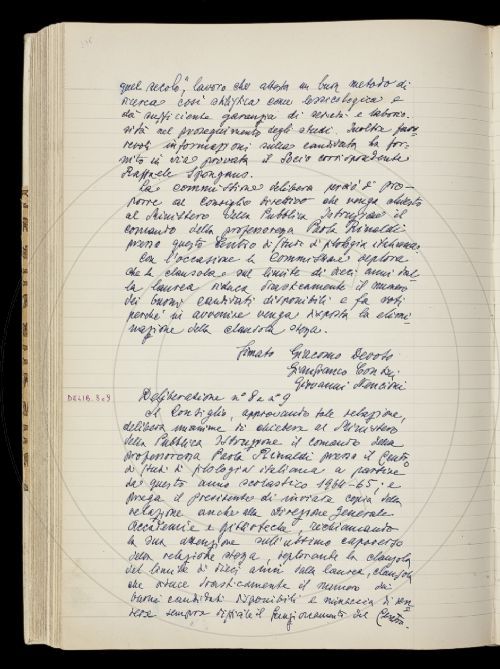 quel secolo", lavoro che attesta un buon metodo di
ricerca così stilistica come lessicologica e
dà sufficiente garanzia di serietà e laborio-
sità nel proseguimento degli studi. Inoltre favo-
revoli informazioni sulla candidata ha for-
nito in via privata il Socio corrispondente
Raffaele Spongano.
La commissione delibera perciò di pro-
porre al consiglio direttivo che venga chiesto
al Ministero della Pubblica Istruzione il
comando della professoressa Paola Rinaldi
presso questo Centro di studi di filologia italiana.
Con l'occasione la Commissione deplora
che la clausola sul limite di dieci anni dal-
la laurea riduca drasticamente il numero
dei buoni candidati disponibili e fa voti
perché in avvenire venga disposta la elimi-
nazione della clausola stessa.
Firmato Giacomo Devoto
Gianfranco Contini
Giovanni Nencioni
DELIB. 8 e 9
Deliberazione n° 8 e n° 9
Il Consiglio, approvando tale relazione,
delibera unanime di chiedere al Ministero
della Pubblica Istruzione il comando della
professoressa Paola Rinaldi presso il Centro
di studi di filologia italiana a partire
da questo anno scolastico 1964-65; e
prega il presidente di inviare copia della
relazione anche alla Direzione generale
Accademie e biblioteche, richiamando
la sua attenzione sull'ultimo capoverso
della relazione stessa, deplorante la clausola
del limite di dieci anni dalla laurea, clausola
che riduce drasticamente il numero dei
buoni candidati disponibili e minaccia di ren-
dere sempre difficile il funzionamento del Centro.